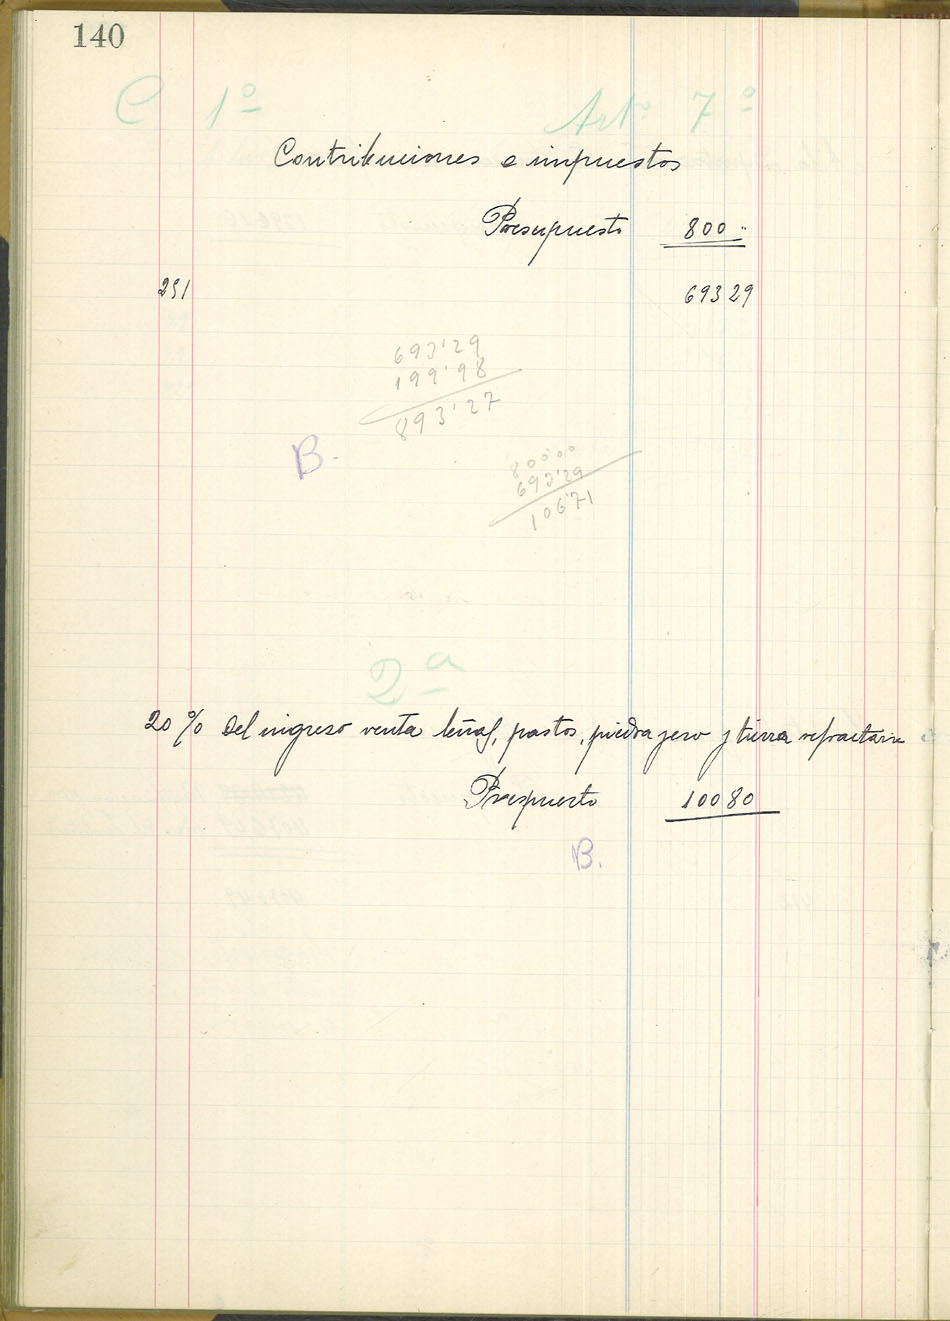 140
C 1º Artº 7º
Contribuciones e impuestos
Presupuesto 800
291 693 29
693'29
199'98
893'27
B.
800'00
693'29
106'71
2ª
20% del ingreso venta leñas, pastos, piedra yeso y tierra refractaria
Prespuesto 100 80
B.